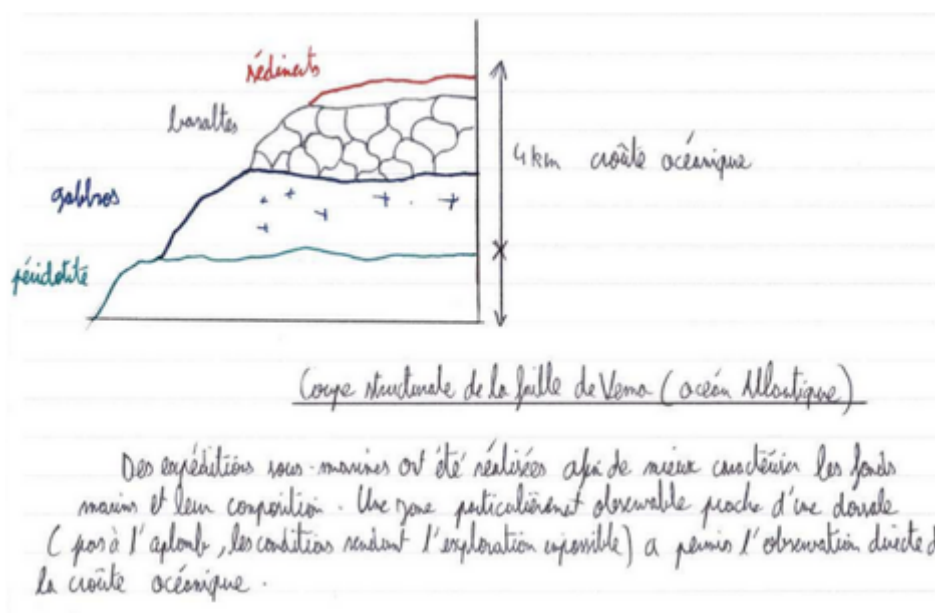 sédiments
basaltes
4 km croûte océanique
gabbros
péridotite
Coupe structurale de la faille de Vema (océan Atlantique)
Des expéditions sous-marines ont été réalisées afin de mieux caractériser les fonds
marins et leur composition. Une zone particulièrement observable proche d'une dorsale
(pas à l'aplomb, les conditions rendant l'exploration impossible) a permis l'observation directe d
la croûte océanique.